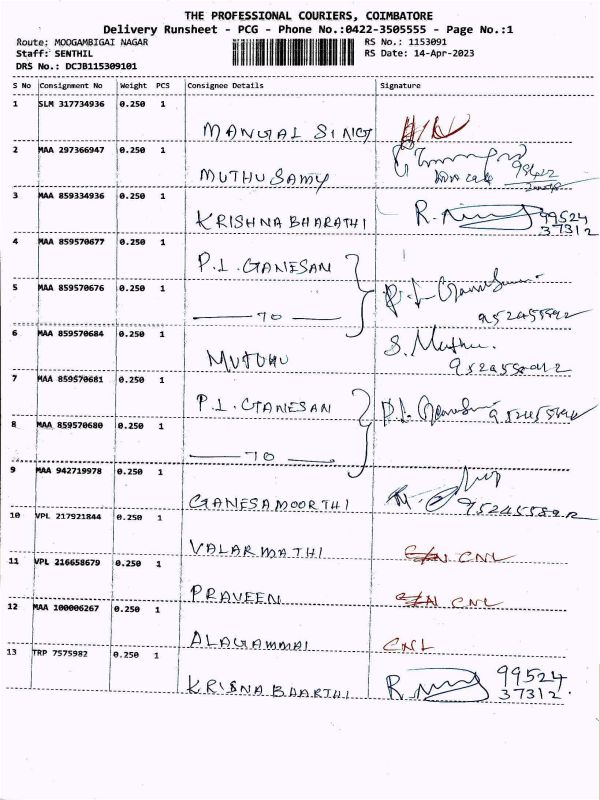 THE PROFESSIONAL COURIERS, COIMBATORE
Delivery Runsheet - PCG - Phone No.:0422-3505555 - Page No.:1
Route: MOOGAMBIGAI NAGAR RS No.: 1153091
Staff: SENTHIL RS Date: 14-Apr-2023
DRS No.: DCJB115309101
S No Consignment No Weight PCS Consignee Details Signature
1 SLM 317734936 0.250 1
MANGAL SING
2 MAA 297366947 0.250 1
MUTHUSAMY
3 MAA 859334936 0.250 1
KRISHNA BHARATHI R. 99524
37312
4 MAA 859570677 0.250 1
P.L. GANESAN
5 MAA 859570676 0.250 1
— TO —
6 MAA 859570684 0.250 1
MUTUHU S. Muthu.
7 MAA 859570681 0.250 1
P.L. GANESAN
8 MAA 859570680 0.250 1
— TO —
9 MAA 942719978 0.250 1
GANESAMOORTHI
10 VPL 217921844 0.250 1
VALARMATHI CNL
11 VPL 216658679 0.250 1
PRAVEEN CNL
12 MAA 100006267 0.250 1
ALAGAMMAI CNL
13 TRP 7575982 0.250 1
KRISNA BAARTHI R 99524
37312.